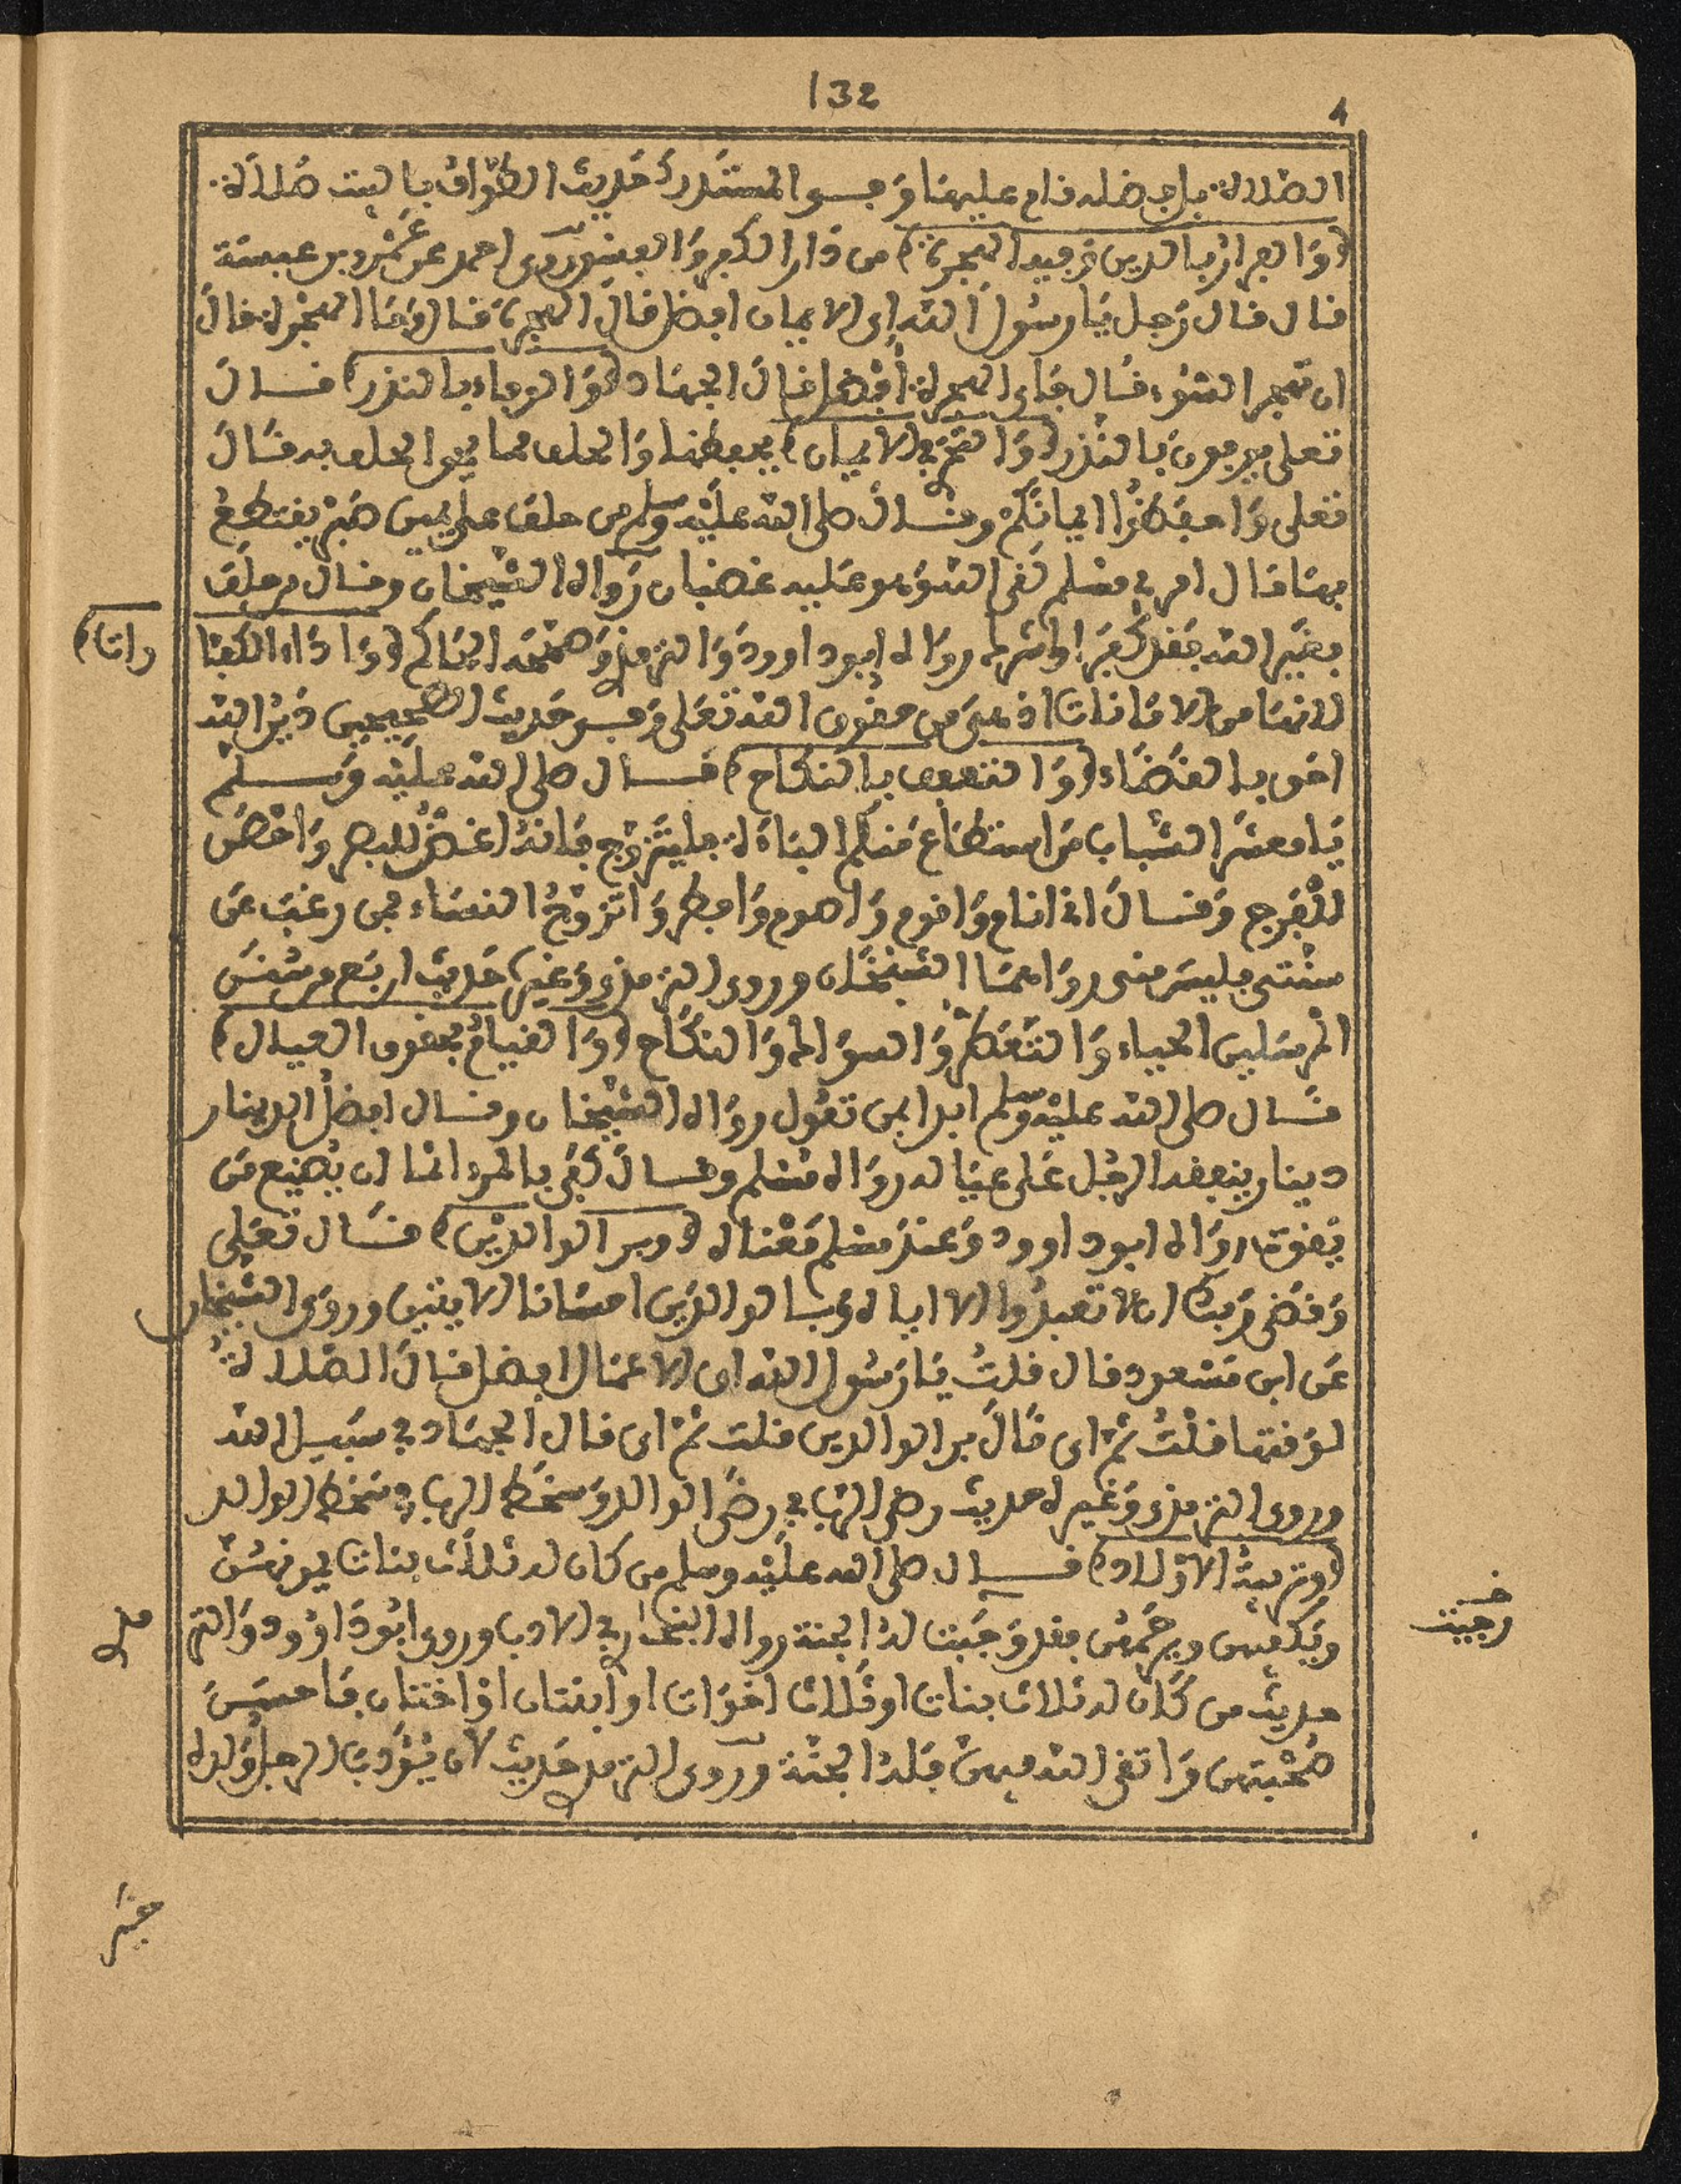 132
الصلاة بافضله فدام عليها وفي المستدرك حديث الطواف بالبيت صلاة
(والفرار بالدين وفيه الهجرة) من دار الكفر والفسوق روى احمد عن عمرو بن عبسة
قال قال رجل يا رسول الله اى الايمان افضل قال الهجرة قال وما الهجرة قال
ان تهجر السوء قال فاى الهجرة افضل قال الجهاد (والوفاء بالنذر) قال
تعلى يوفون بالنذر (والتحرى في الايمان) بحفظها والحلف بما يجوز الحلف به قال
تعلى واحفظوا ايمانكم وقال صلى الله عليه وسلم من حلف على يمين صبر يقتطع
بها مال امرئ مسلم لقى الله وهو عليه غضبان رواه الشيخان وقال من حلف
بغير الله فقد كفر او اشرك رواه ابو داوود والترمذى وصححه الحاكم (واداء الكفارات)
لانها من الامانات اذ هى من حقوق الله تعلى وفي حديث الصحيحين دين الله
احق بالقضاء (والتعفف بالنكاح) قال صلى الله عليه وسلم
يا معشر الشباب من استطاع منكم الباءة فليتزوج فانه اغض للبصر واحصن
للفرج وقال انى انام واقوم واصوم وافطر واتزوج النساء فمن رغب عن
سنتى فليس منى رواهما الشيخان وروى الترمذى وغيره حديث اربع من سنن
المرسلين الحياء والتعطر والسواك والنكاح (والقيام بحقوق العيال)
قال صلى الله عليه وسلم ابدا بمن تعول رواه الشيخان وقال افضل الدينار
دينار ينفقه الرجل على عياله رواه مسلم وقال كفى بالمرء اثما ان يضيع من
يقوت رواه ابو داوود وعند مسلم معناه (وبر الوالدين) قال تعلى
وقضى ربك ان لا تعبدوا الا اياه وبالوالدين احسانا الايتين وروى الشيخان
عن ابن مسعود قال قلت يا رسول الله اى الاعمال افضل قال الصلاة
لوقتها قلت ثم اى قال بر الوالدين قلت ثم اى قال الجهاد في سبيل الله
وروى الترمذى وغيره حديث رضى الرب في رضى الوالد وسخط الرب في سخط الوالد
(وتربية الاولاد) قال صلى الله عليه وسلم من كان له ثلاث بنات يودبهن
ويكفيهن ويرحمهن فقد وجبت له الجنة رواه البخارى في الادب وروى ابو داوود والترمذى
حديث من كان له ثلاث بنات او ثلاث اخوات او ابنتان او اختان فاحسن
صحبتهن واتقى الله فيهن فله الجنة وروى الترمذى حديث لان يؤدب الرجل ولده
خير